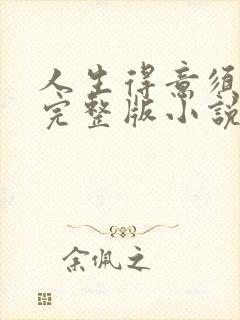 人生得意须
完整版小說
余佩之